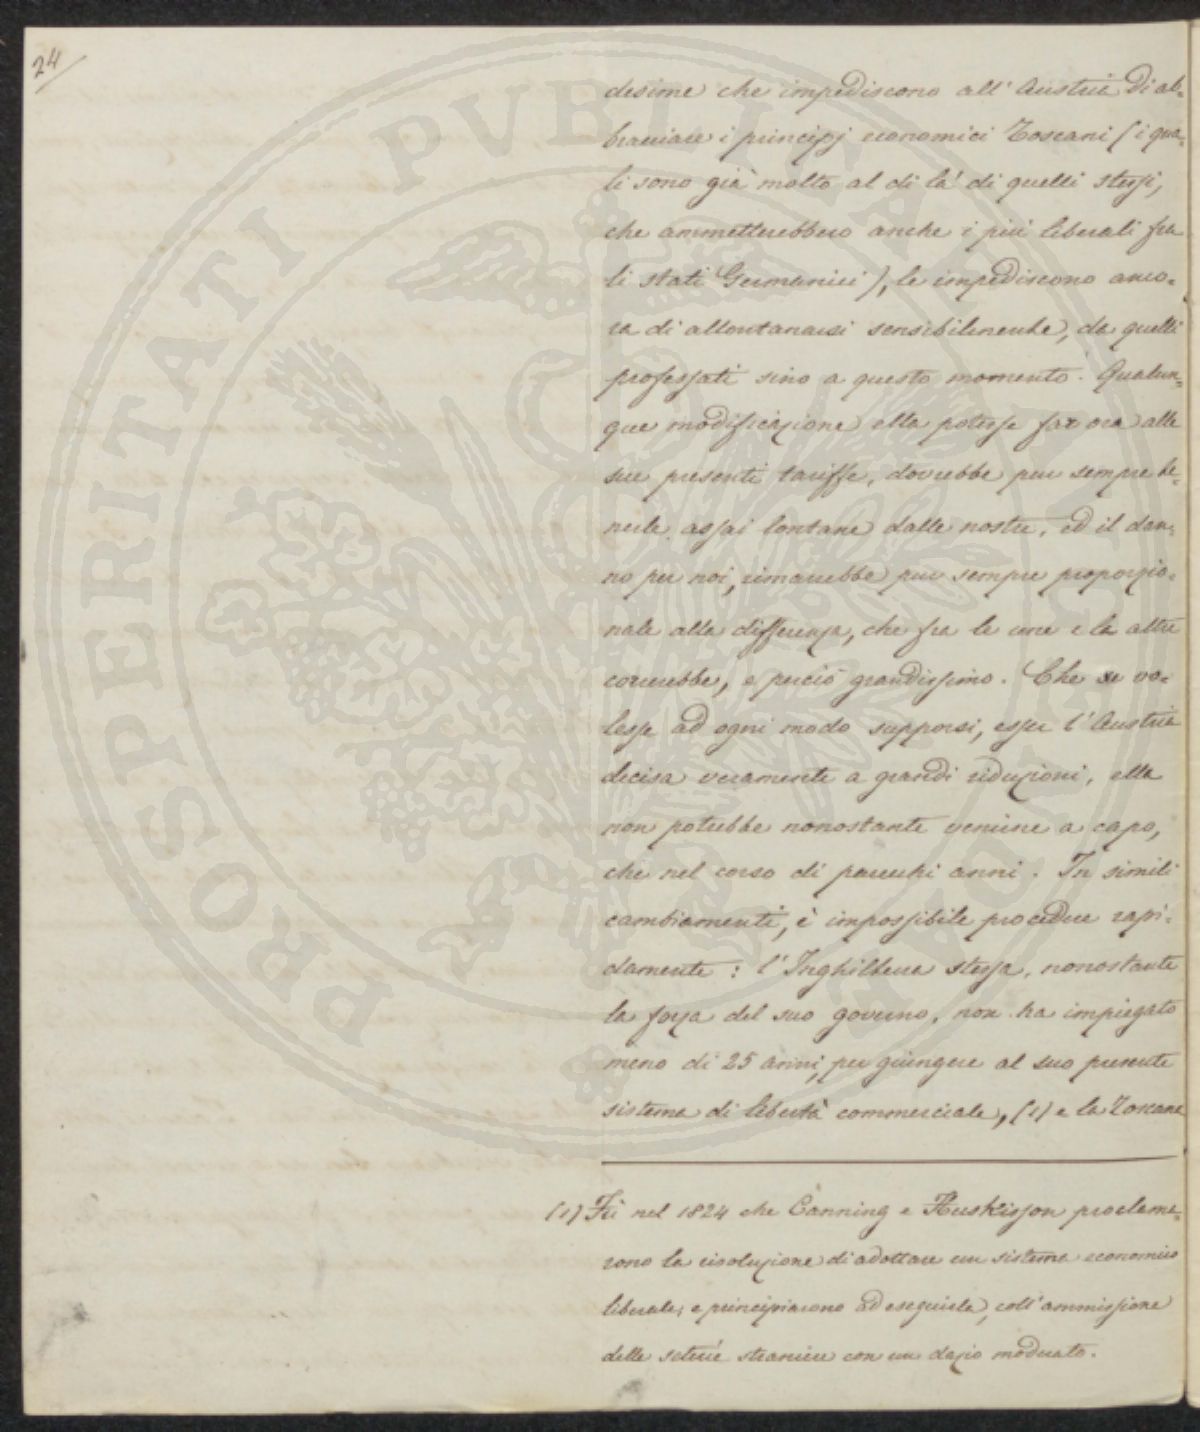 24
desime che impediscono all' Austria di ab-
bracciare i principj economici Toscani (i qua-
li sono già molto al di là di quelli stessi,
che ammetterebbero anche i più liberali fra
li stati Germanici), le impediscono anco-
ra di allontanarsi sensibilmente, da quelli
professati sino a questo momento. Qualun-
que modificazione ella potesse far ora alle
sue presenti tariffe, dovrebbe pur sempre te-
nerle assai lontane dalle nostre, ed il dan-
no per noi, rimarrebbe pur sempre proporzio-
nale alla differenza, che fra le une e le altre
correrebbe, e perciò grandissimo. Che se vo-
lesse ad ogni modo supporsi, esser l'Austria
decisa veramente a grandi riduzioni, ella
non potrebbe nonostante venirne a capo,
che nel corso di parecchi anni. In simili
cambiamenti, è impossibile procedere rapi-
damente: l'Inghilterra stessa, nonostante
la forza del suo governo, non ha impiegato
meno di 25 anni, per giungere al suo presente
sistema di libertà commerciale, (1) e la Toscana
(1) Fù nel 1824 che Canning e Huskisson proclama-
rono la risoluzione di adottare un sistema economico
liberale; e principiarono ad eseguirla, coll'ammissione
delle seterie straniere con un dazio moderato.
PROSPERITATI PVBLICAE AVGENDAE